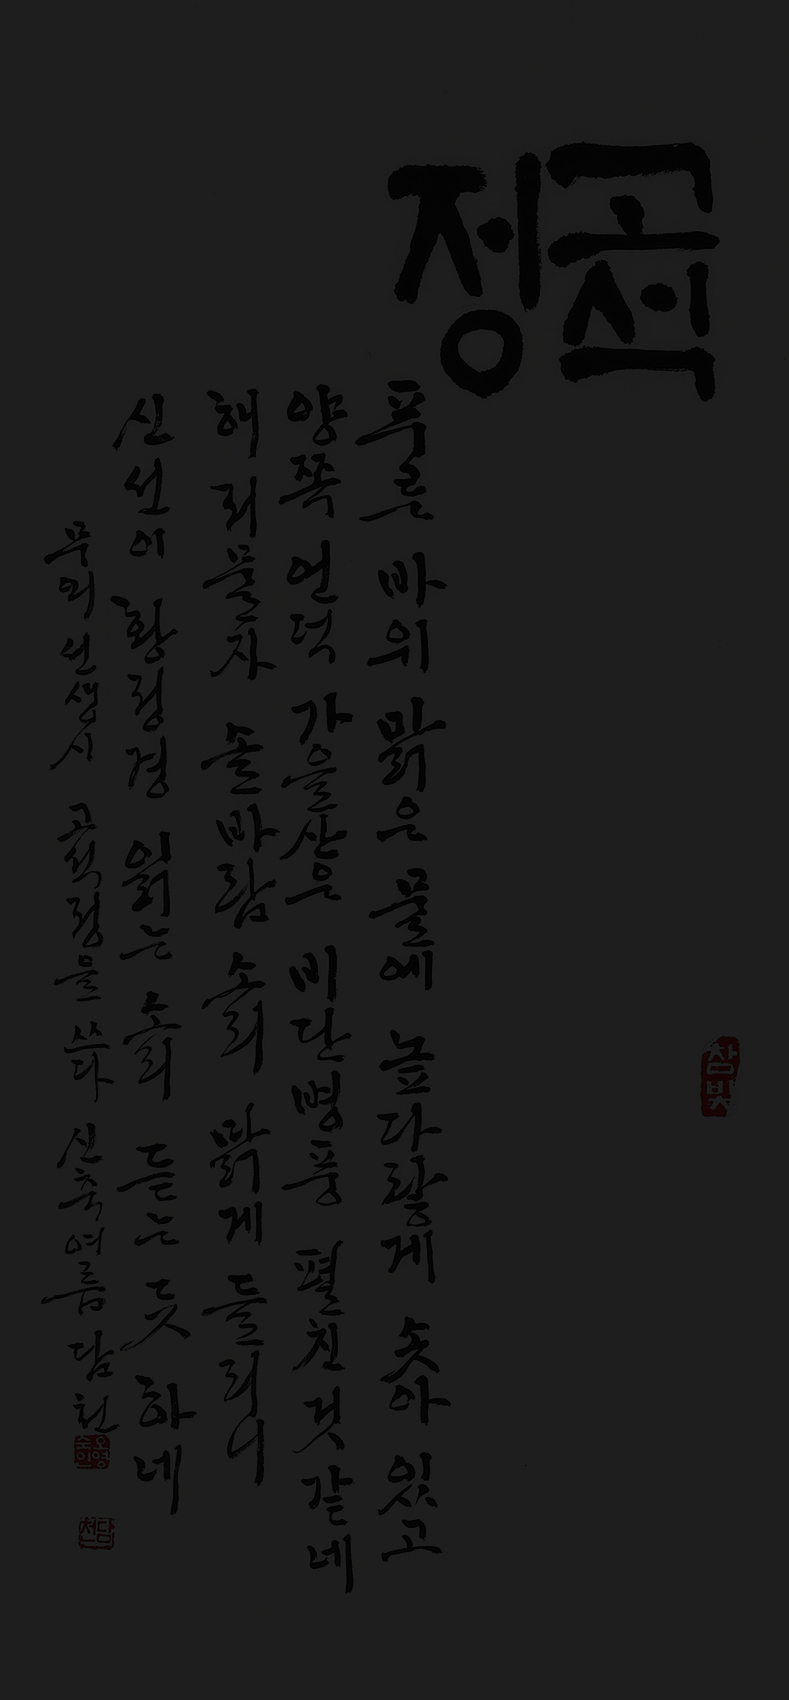 고석정
푸른 바위 맑은 물에 높다랗게 솟아 있고
양쪽 언덕 가을산은 비단병풍 펼친 것 같네
해 저물자 솔바람 소리 맑게 들리니
신선이 황정경 읽는 소리 듣는 듯 하네
무외선생시 고석정을 쓰다 신축여름 담천
참빛
담천